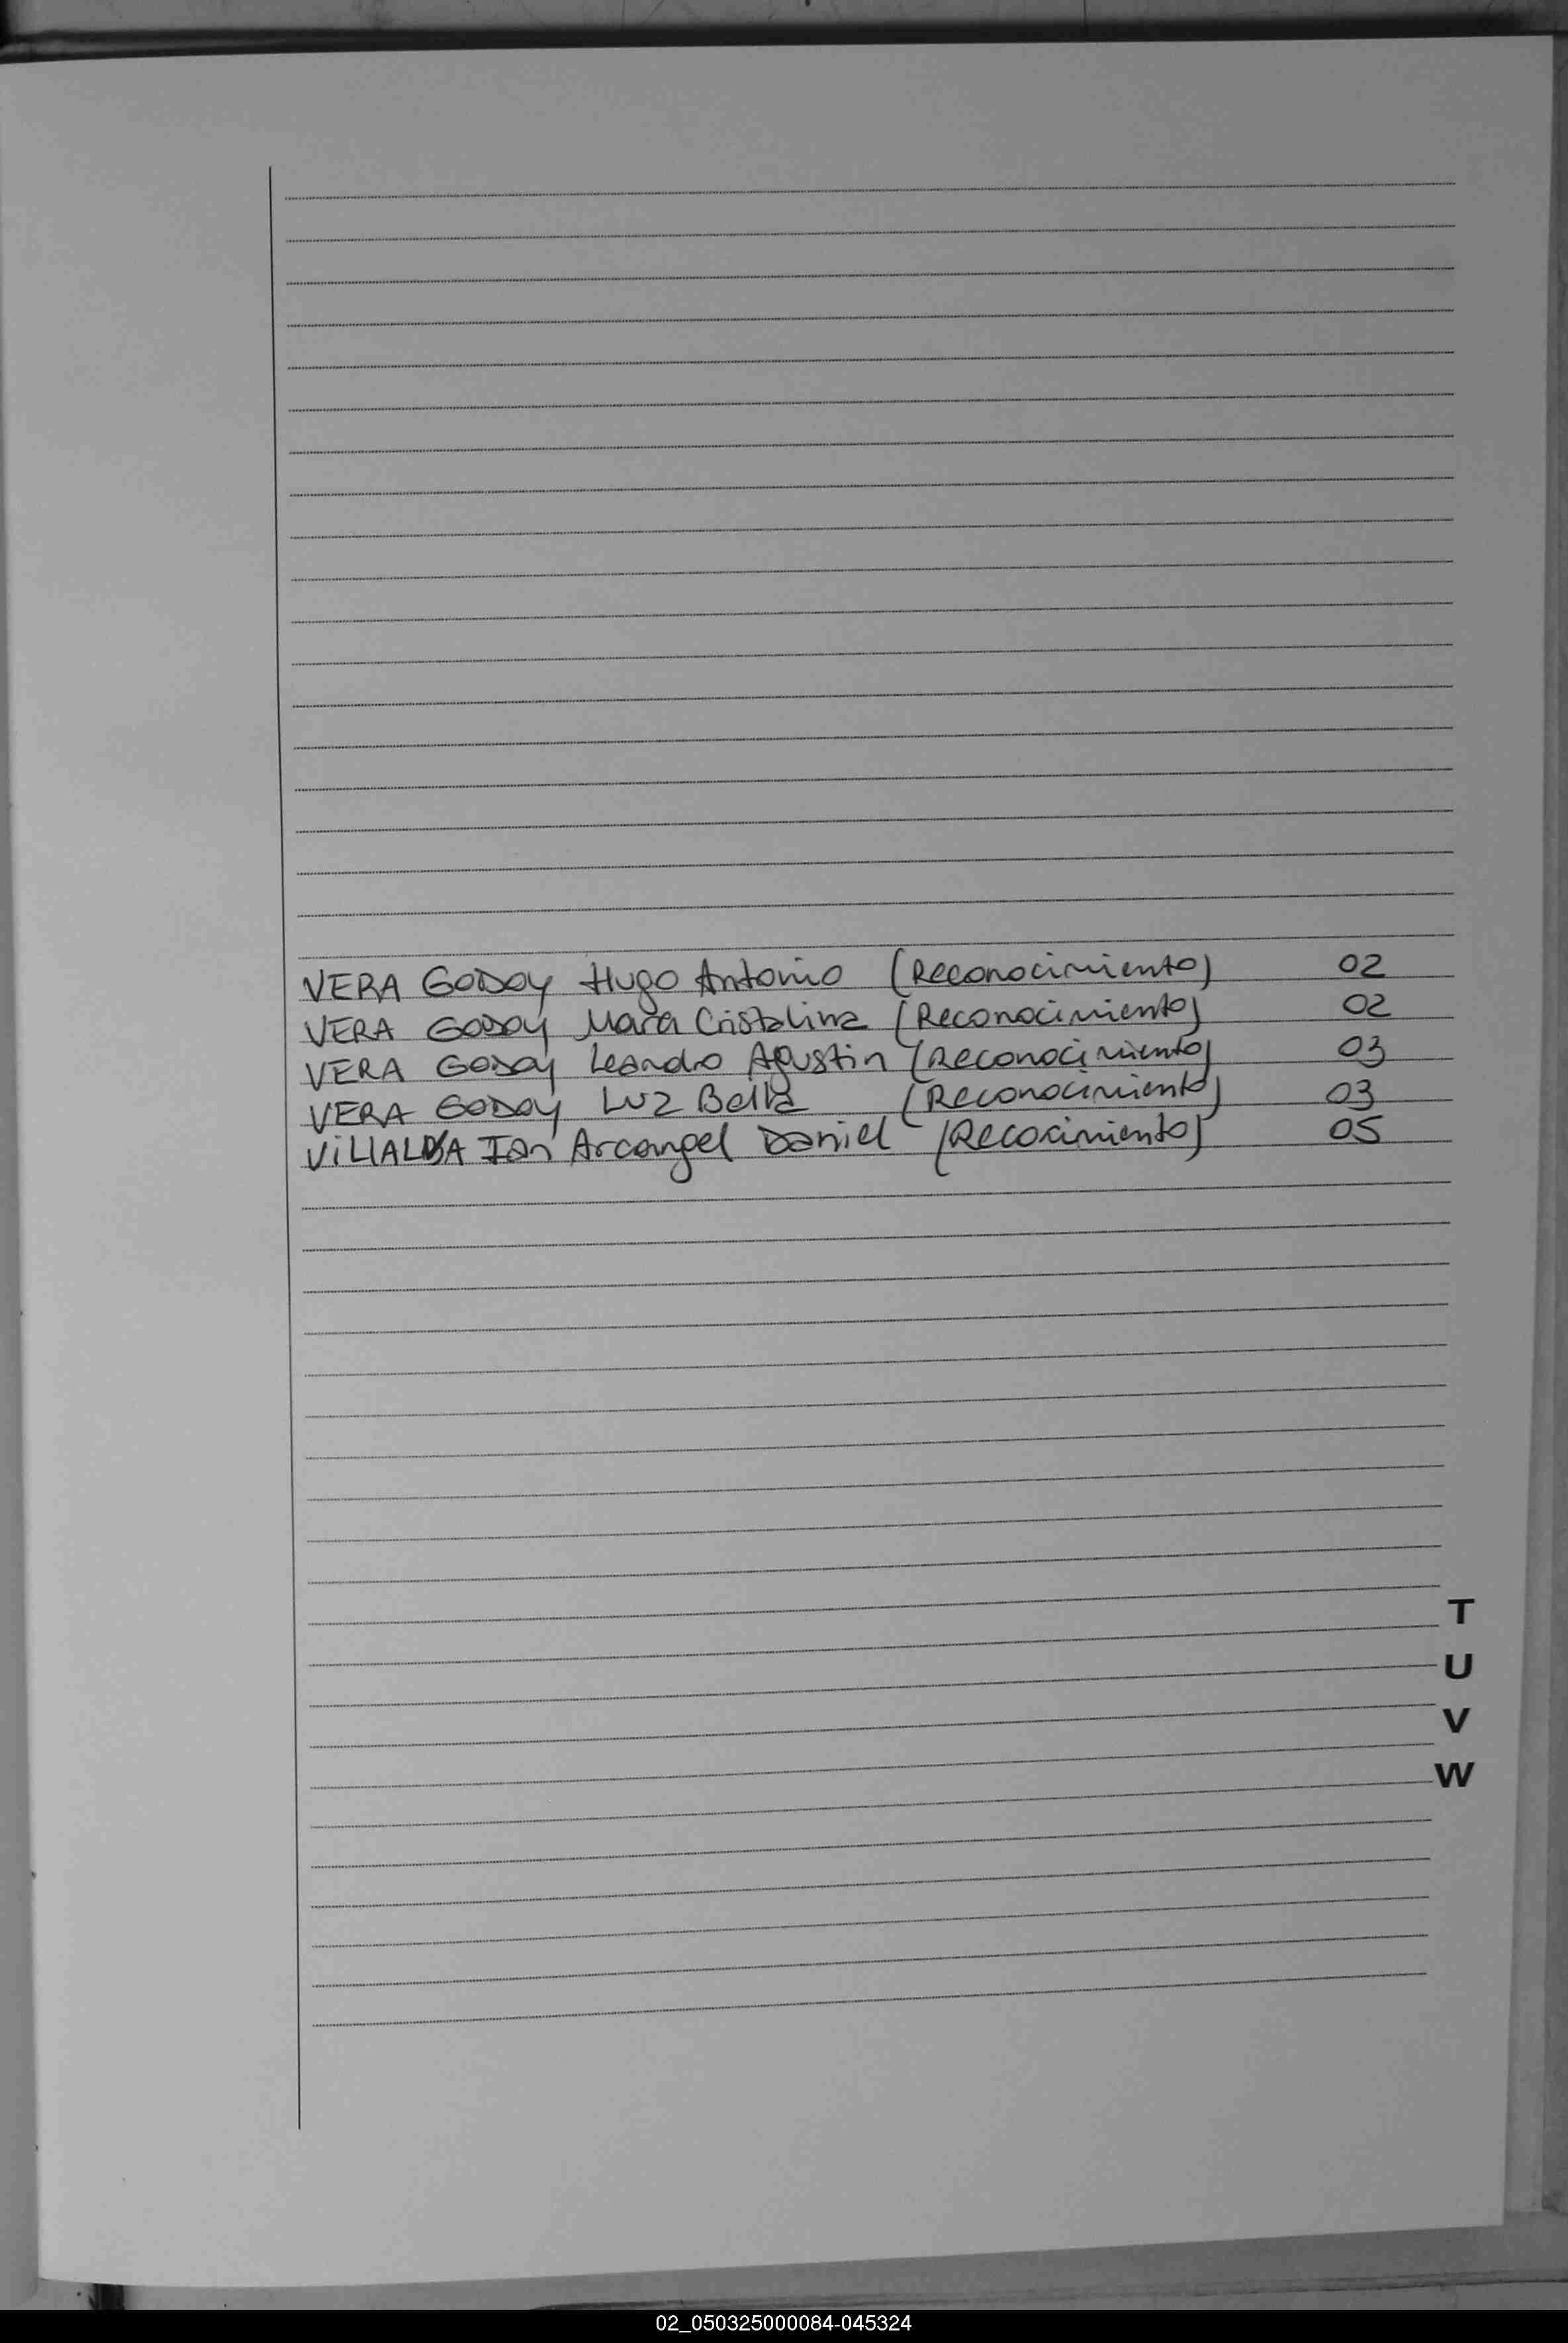 VERA GODOY Hugo Antonio (Reconocimiento) 02
VERA GODOY Mara Cristalina (Reconocimiento) 02
VERA GODOY Leandro Agustin (Reconocimiento) 03
VERA GODOY Luz Bella (Reconocimiento) 03
ViLLALBA Ian Arcangel Daniel (Recocimiento) 05
T
U
V
W
02_050325000084-045324